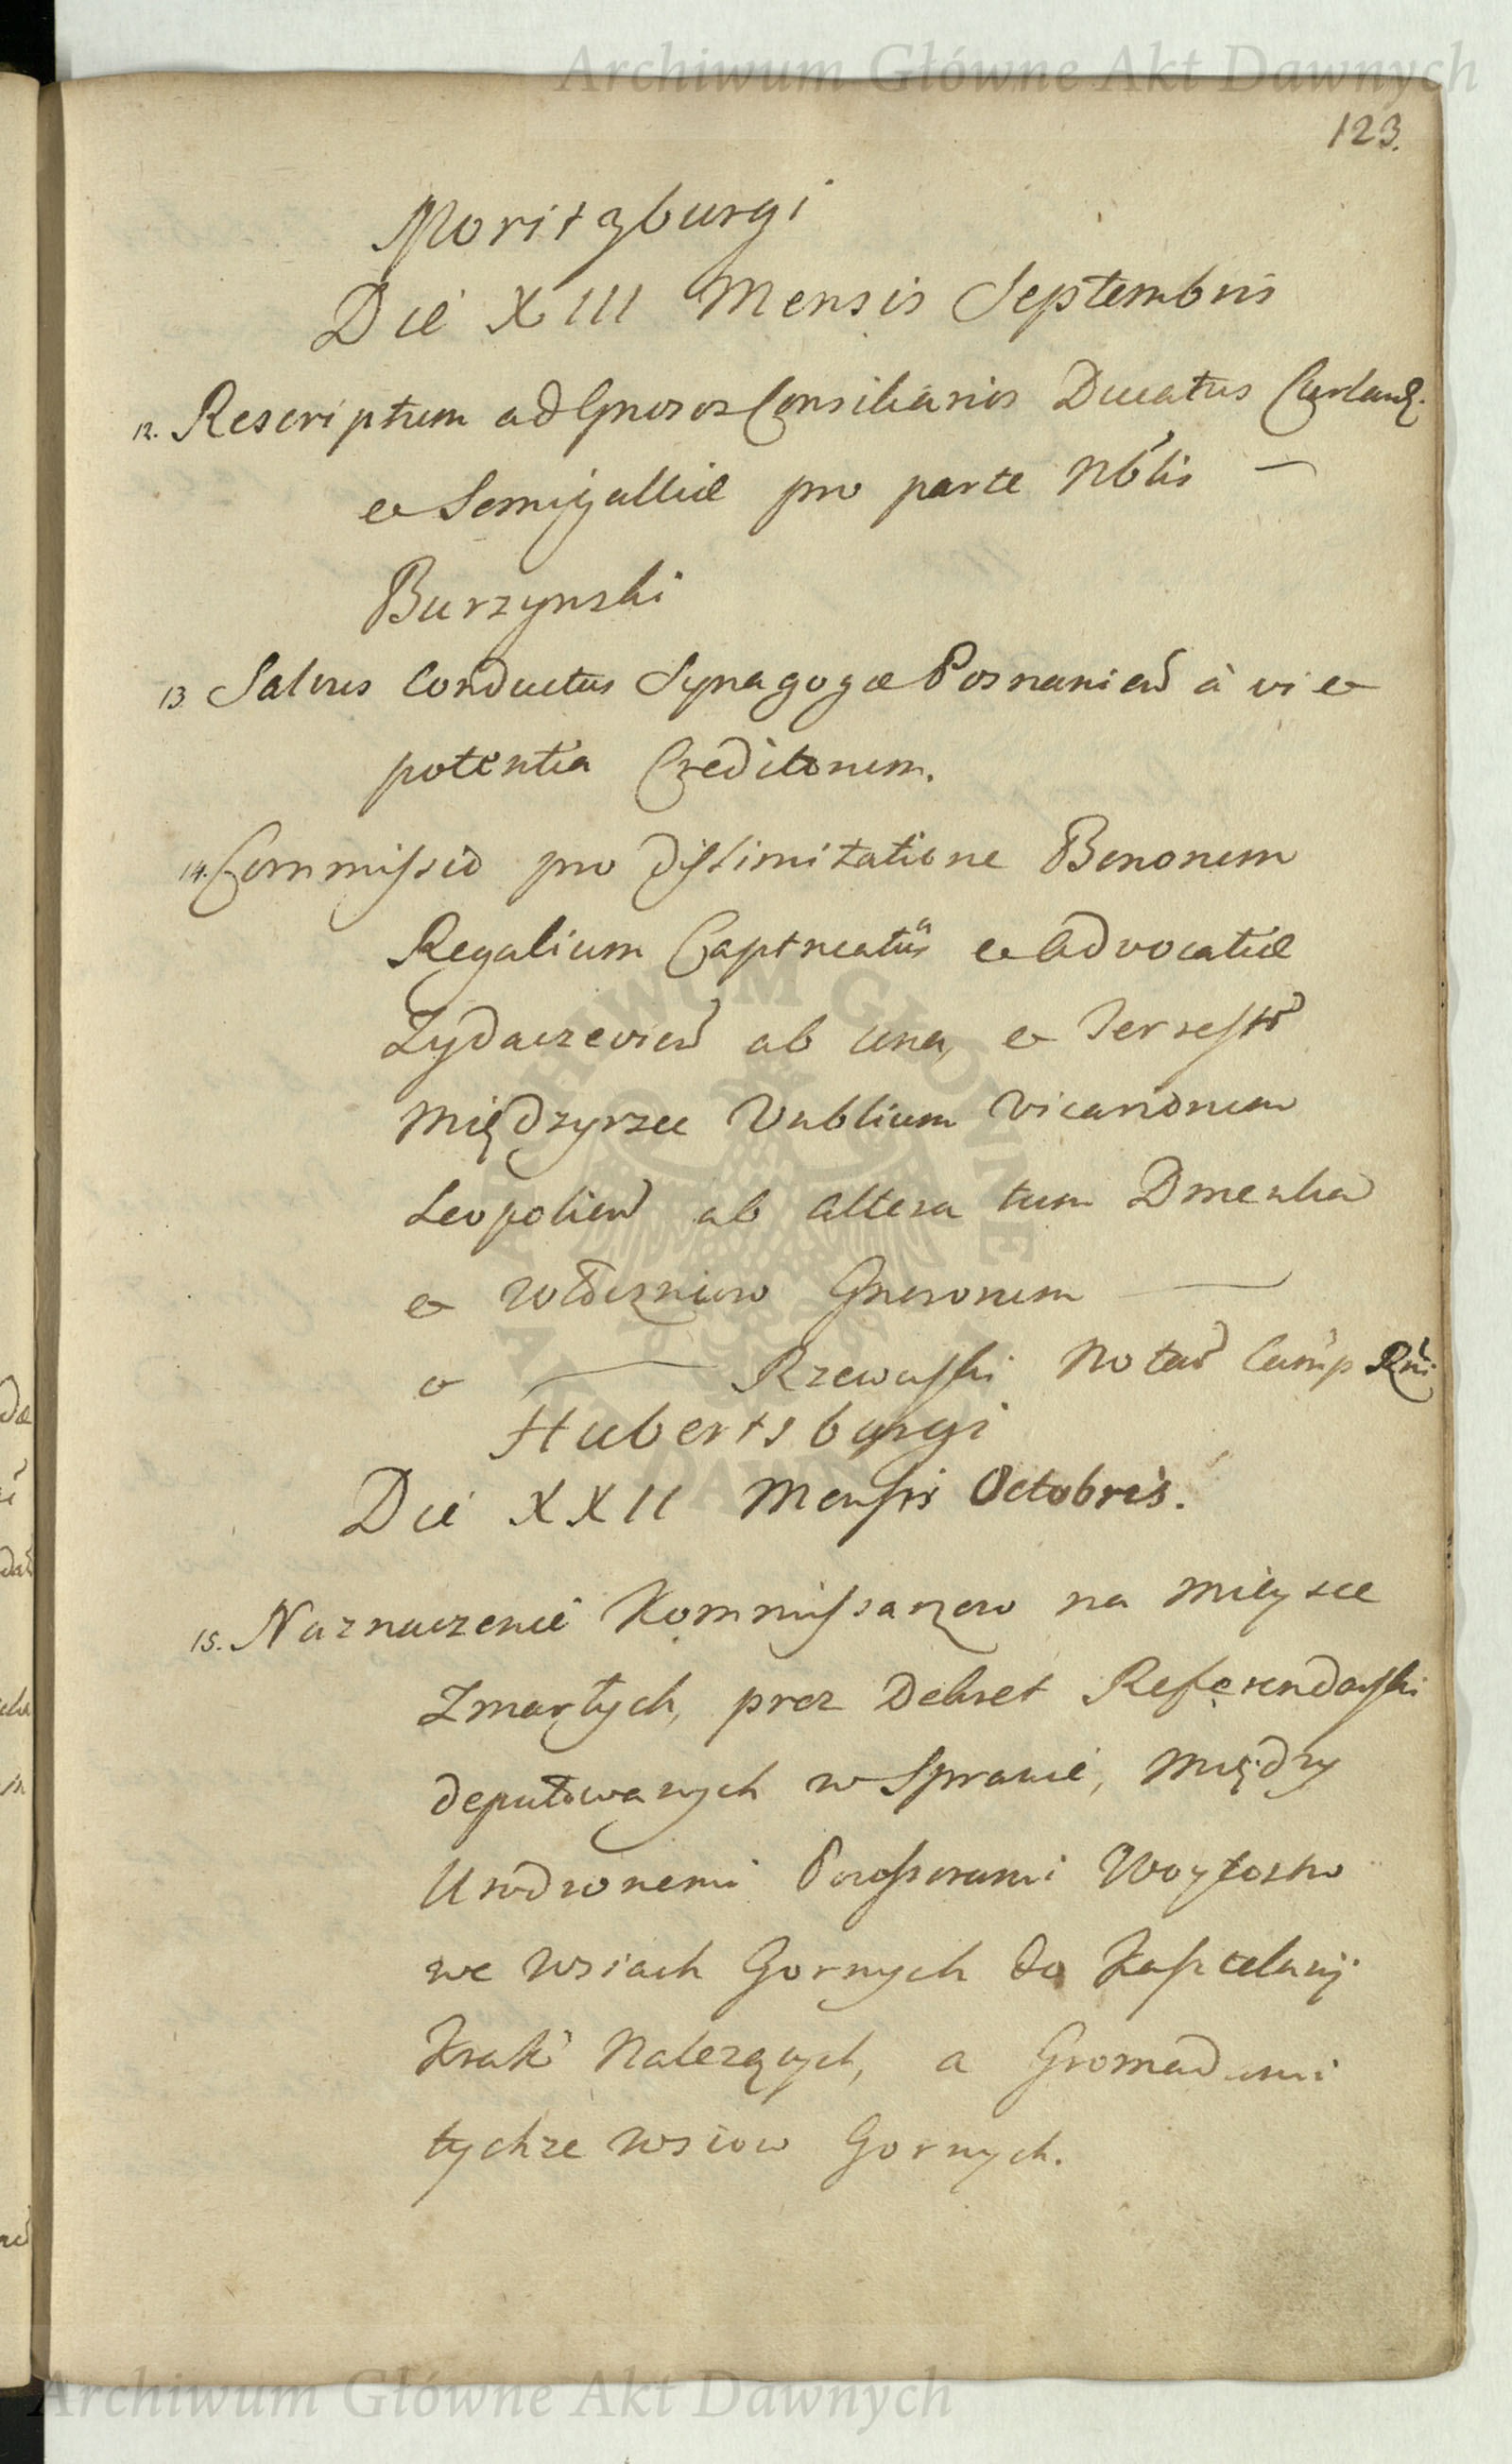 Archiwum Główne Akt Dawnych
123.
Moritzburgi
Die XIII Mensis Septembris
12. Rescriptum ad Gnosos Consiliarios Ducatus Curland.
et Semigalliæ pro parte Nblis —
Burzynski
13 Salvus Conductus Synagogæ Posnanien à vi et
potentia Creditorum.
14. Commissio pro dislimitatione Bonorum
Regalium Captneatûs et Advocatiæ
Zydaczevien ab una, et Terrestr
Międzyrzec Vnblium Vicariorum
Leopolien ab altera tum
et Gnerorum —
et — Rzewuski Notar Camp Rni
Hubertsburgi
Die XXII Mensis Octobris.
15. Naznaczenie Kommissarzow na mieysce
Zmarłych, prez Dekret Referendarski
deputowanych w Sprawie, między
Urodzonemi Possessorami Woytostw
we wsiach Gornych do Kasztelanij
Krak Nalezących, a Gromadami
tychze wsiow Gornych.
ARCHIWUM GŁÓWNE AKT DAWNYCH
Archiwum Główne Akt Dawnych